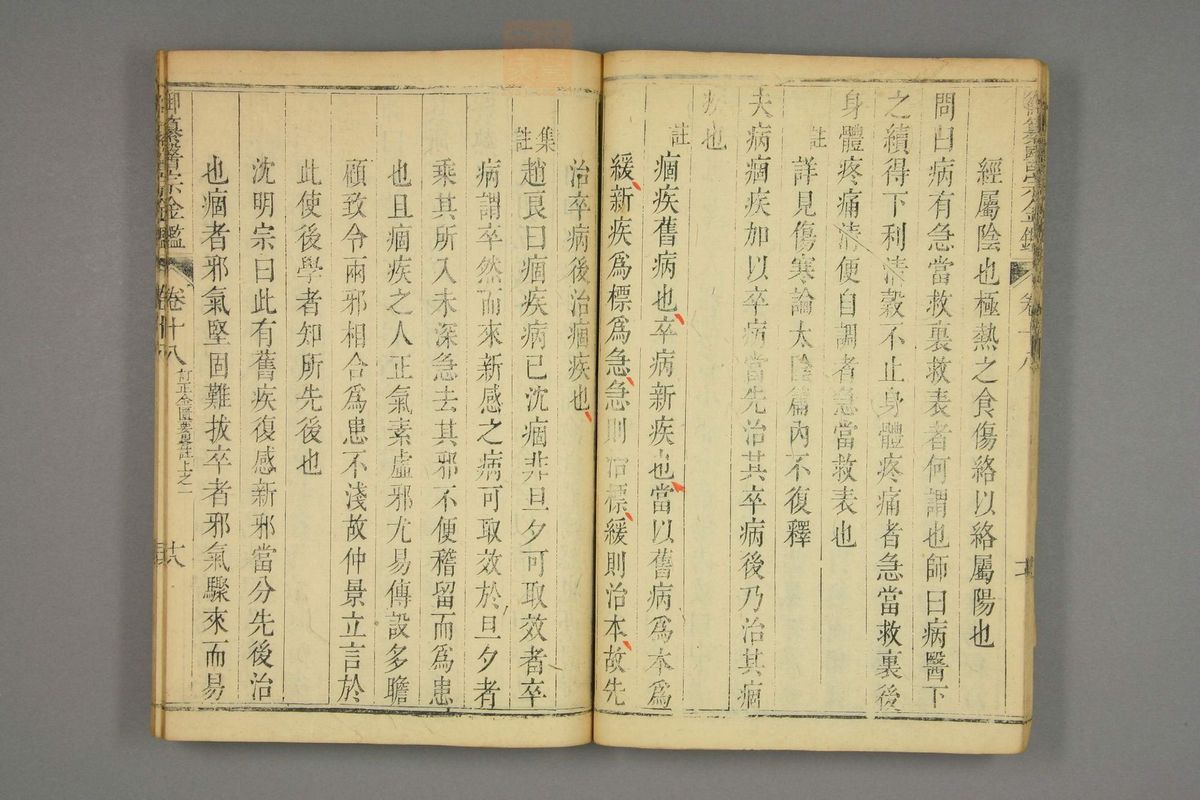 經屬陰也極熱之食傷絡以絡屬陽也
問曰病有急當救裏救表者何謂也師曰病醫下
之續得下利清穀不止身體疼痛者急當救裏後
身體疼痛清便自調者急當救表也
註詳見傷寒論太陰篇內不復釋
夫病痼疾加以卒病當先治其卒病後乃治其痼
疾也
註痼疾舊病也卒病新疾也當以舊病為本為
緩新疾為標為急急則治標緩則治本故先
治卒病後治痼疾也
集註趙良曰痼疾病已沈痼非旦夕可取效者卒
病謂卒然而來新感之病可取效於旦夕者
乘其所入未深急去其邪不便稽留而為患
也且痼疾之人正氣素虛邪尤易傳設多瞻
顧致令兩邪相合為患不淺故仲景立言於
此使後學者知所先後也
沈明宗曰此有舊疾復感新邪當分先後治
也痼者邪氣堅固難拔卒者邪氣驟來而易
御纂醫宗金鑑
卷十八
訂正金匱要略註上之一
十八